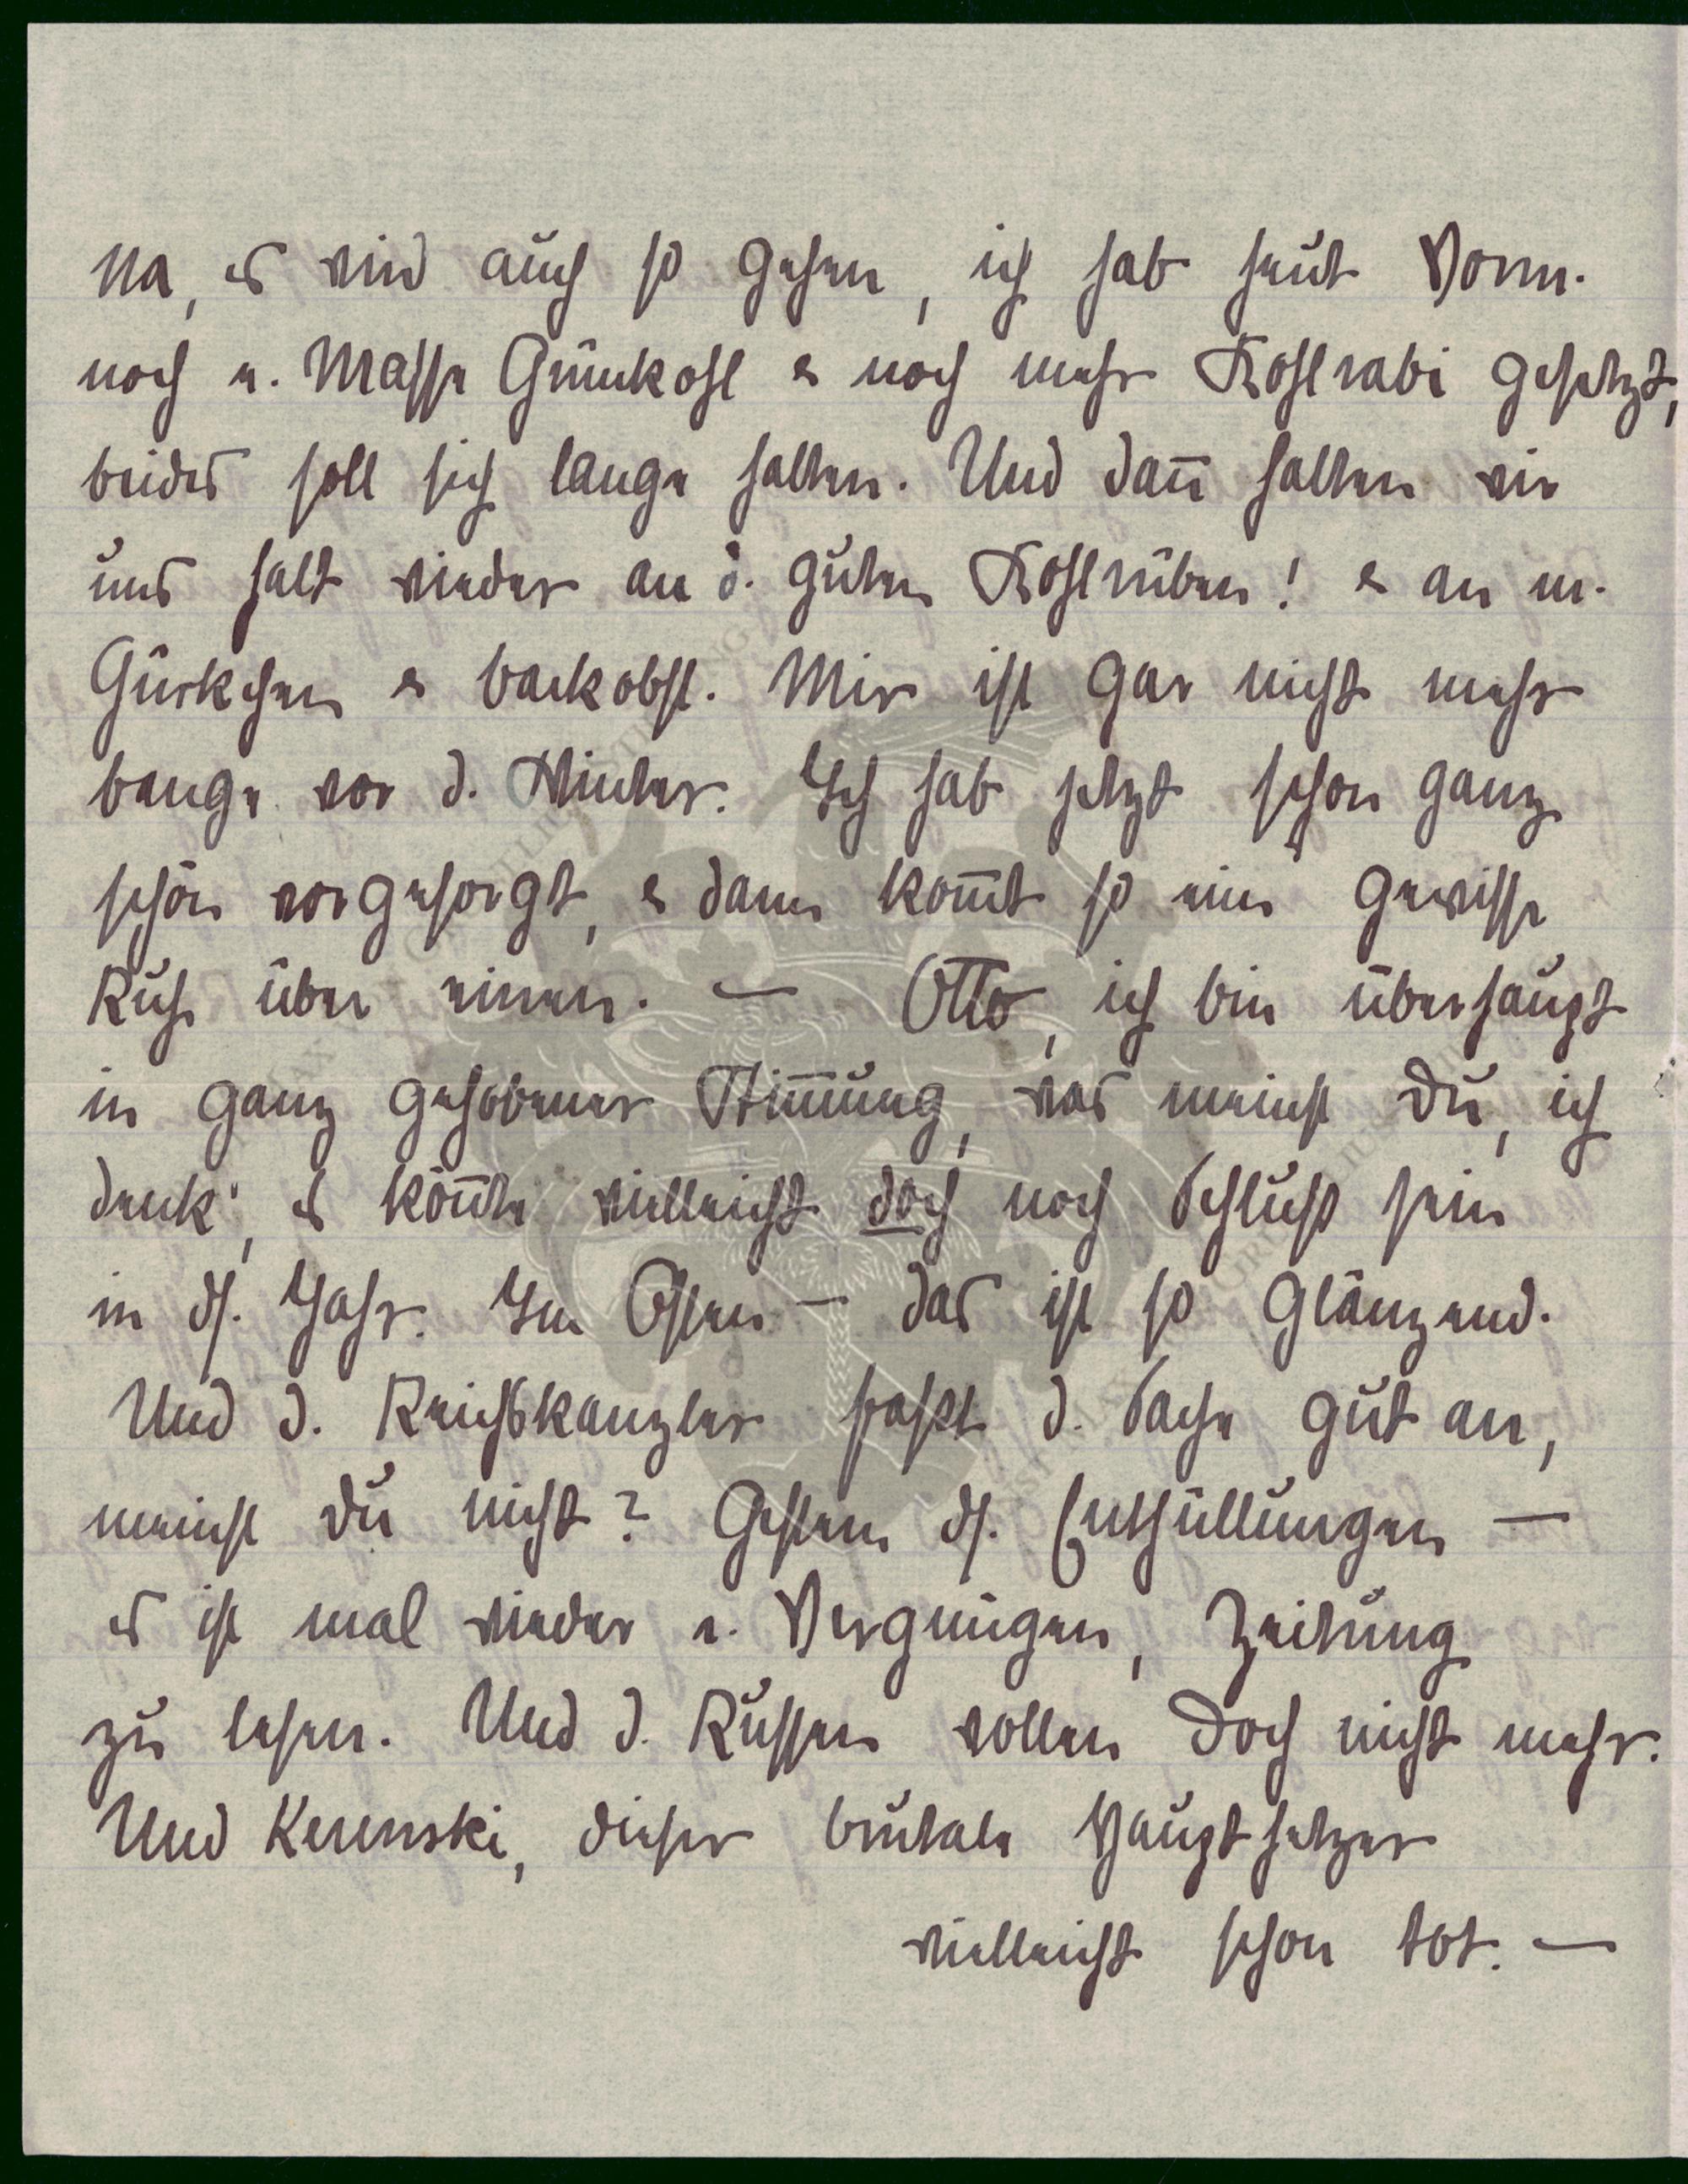 Na, es wird auch so gehen, ich hab heut Vorm.
noch e. Masse Grünkohl & noch mehr Kohlrabi gesetzt,
beides soll sich lange halten. Und dan̄ halten wir
uns halt wieder an d. guten Kohlrüben! & an m.
Gürkchen & backobst. Mir ist gar nicht mehr
bange vor d. Winter. Ich hab jetzt schon ganz
schön vorgesorgt, & dann kom̄t so eine gewisse
Ruhe über einen. — Otto, ich bin überhaupt
in ganz gehobener Stim̄ung, was meinst Du, ich
denk', es kön̄te vielleicht doch noch Schluß sein
in ds. Jahr. Im Osten — das ist so glänzend.
Und d. Reichskanzler faßt d. Sache gut an,
meinst Du nicht? Gestern ds. Enthüllungen —
es ist mal wieder e. Vergnügen, Zeitung
zu lesen. Und d. Russen wollen doch nicht mehr.
Und Kerenski, dieser brutale Haupthetzer
vielleicht schon tot. —